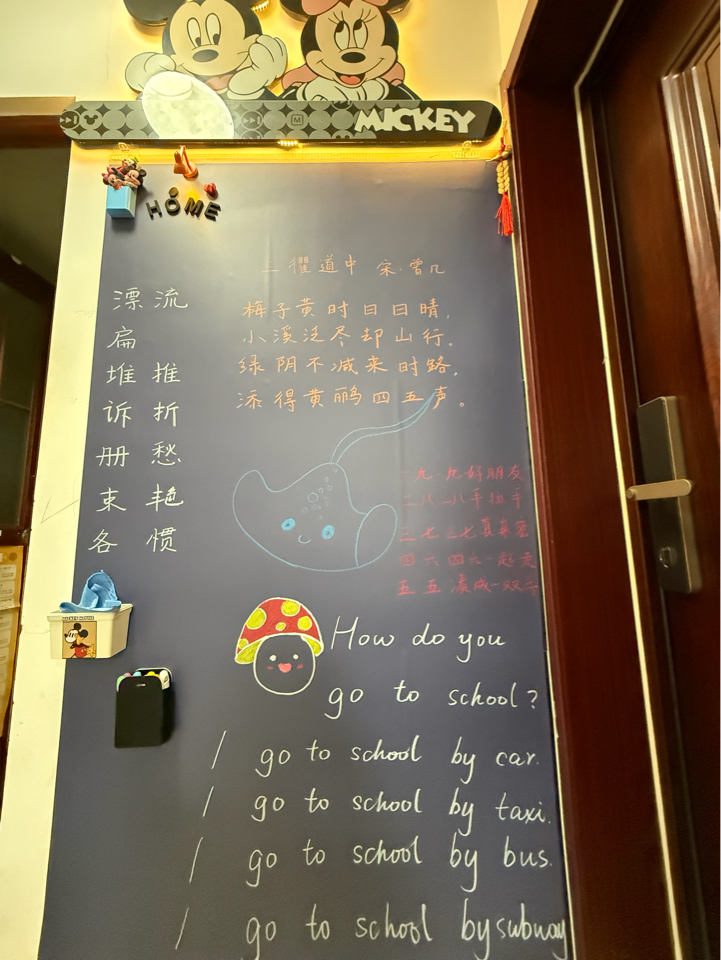 MICKEY
HOME
三衢道中 宋·曾几
梅子黄时日日晴,
小溪泛尽却山行。
绿阴不减来时路,
添得黄鹂四五声。
漂 流
扁
堆 推
诉 折
册 愁
束 艳
各 惯
一九一九好朋友
二八二八手拉手
三七三七真亲密
四六四六一起走
五五凑成一双手
How do you
go to school?
I go to school by car.
I go to school by taxi.
I go to school by bus.
I go to school by subway